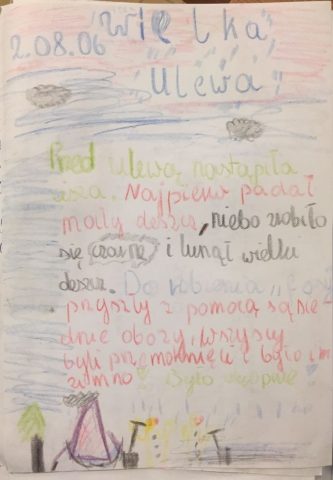 2.08.06 Wielka
"Ulewa"
Przed ulewą nastąpiła
cisza. Najpierw padał
mały deszcz, niebo zrobiło
się czarne i lunął wielki
deszcz. Do robienia "fosy
przyszły z pomocą sąsie-
dnie obozy, wszyscy
byli przemoknięci i było im
zimno! Było